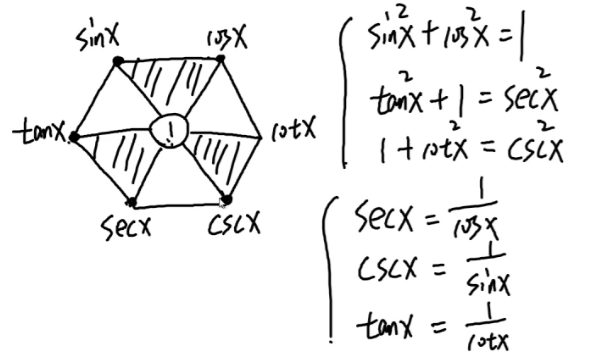 sinx cosx
tanx 1 cotx
secx cscx
sin²x + cos²x = 1
tan²x + 1 = sec²x
1 + cot²x = csc²x
secx = 1/cosx
cscx = 1/sinx
tanx = 1/cotx